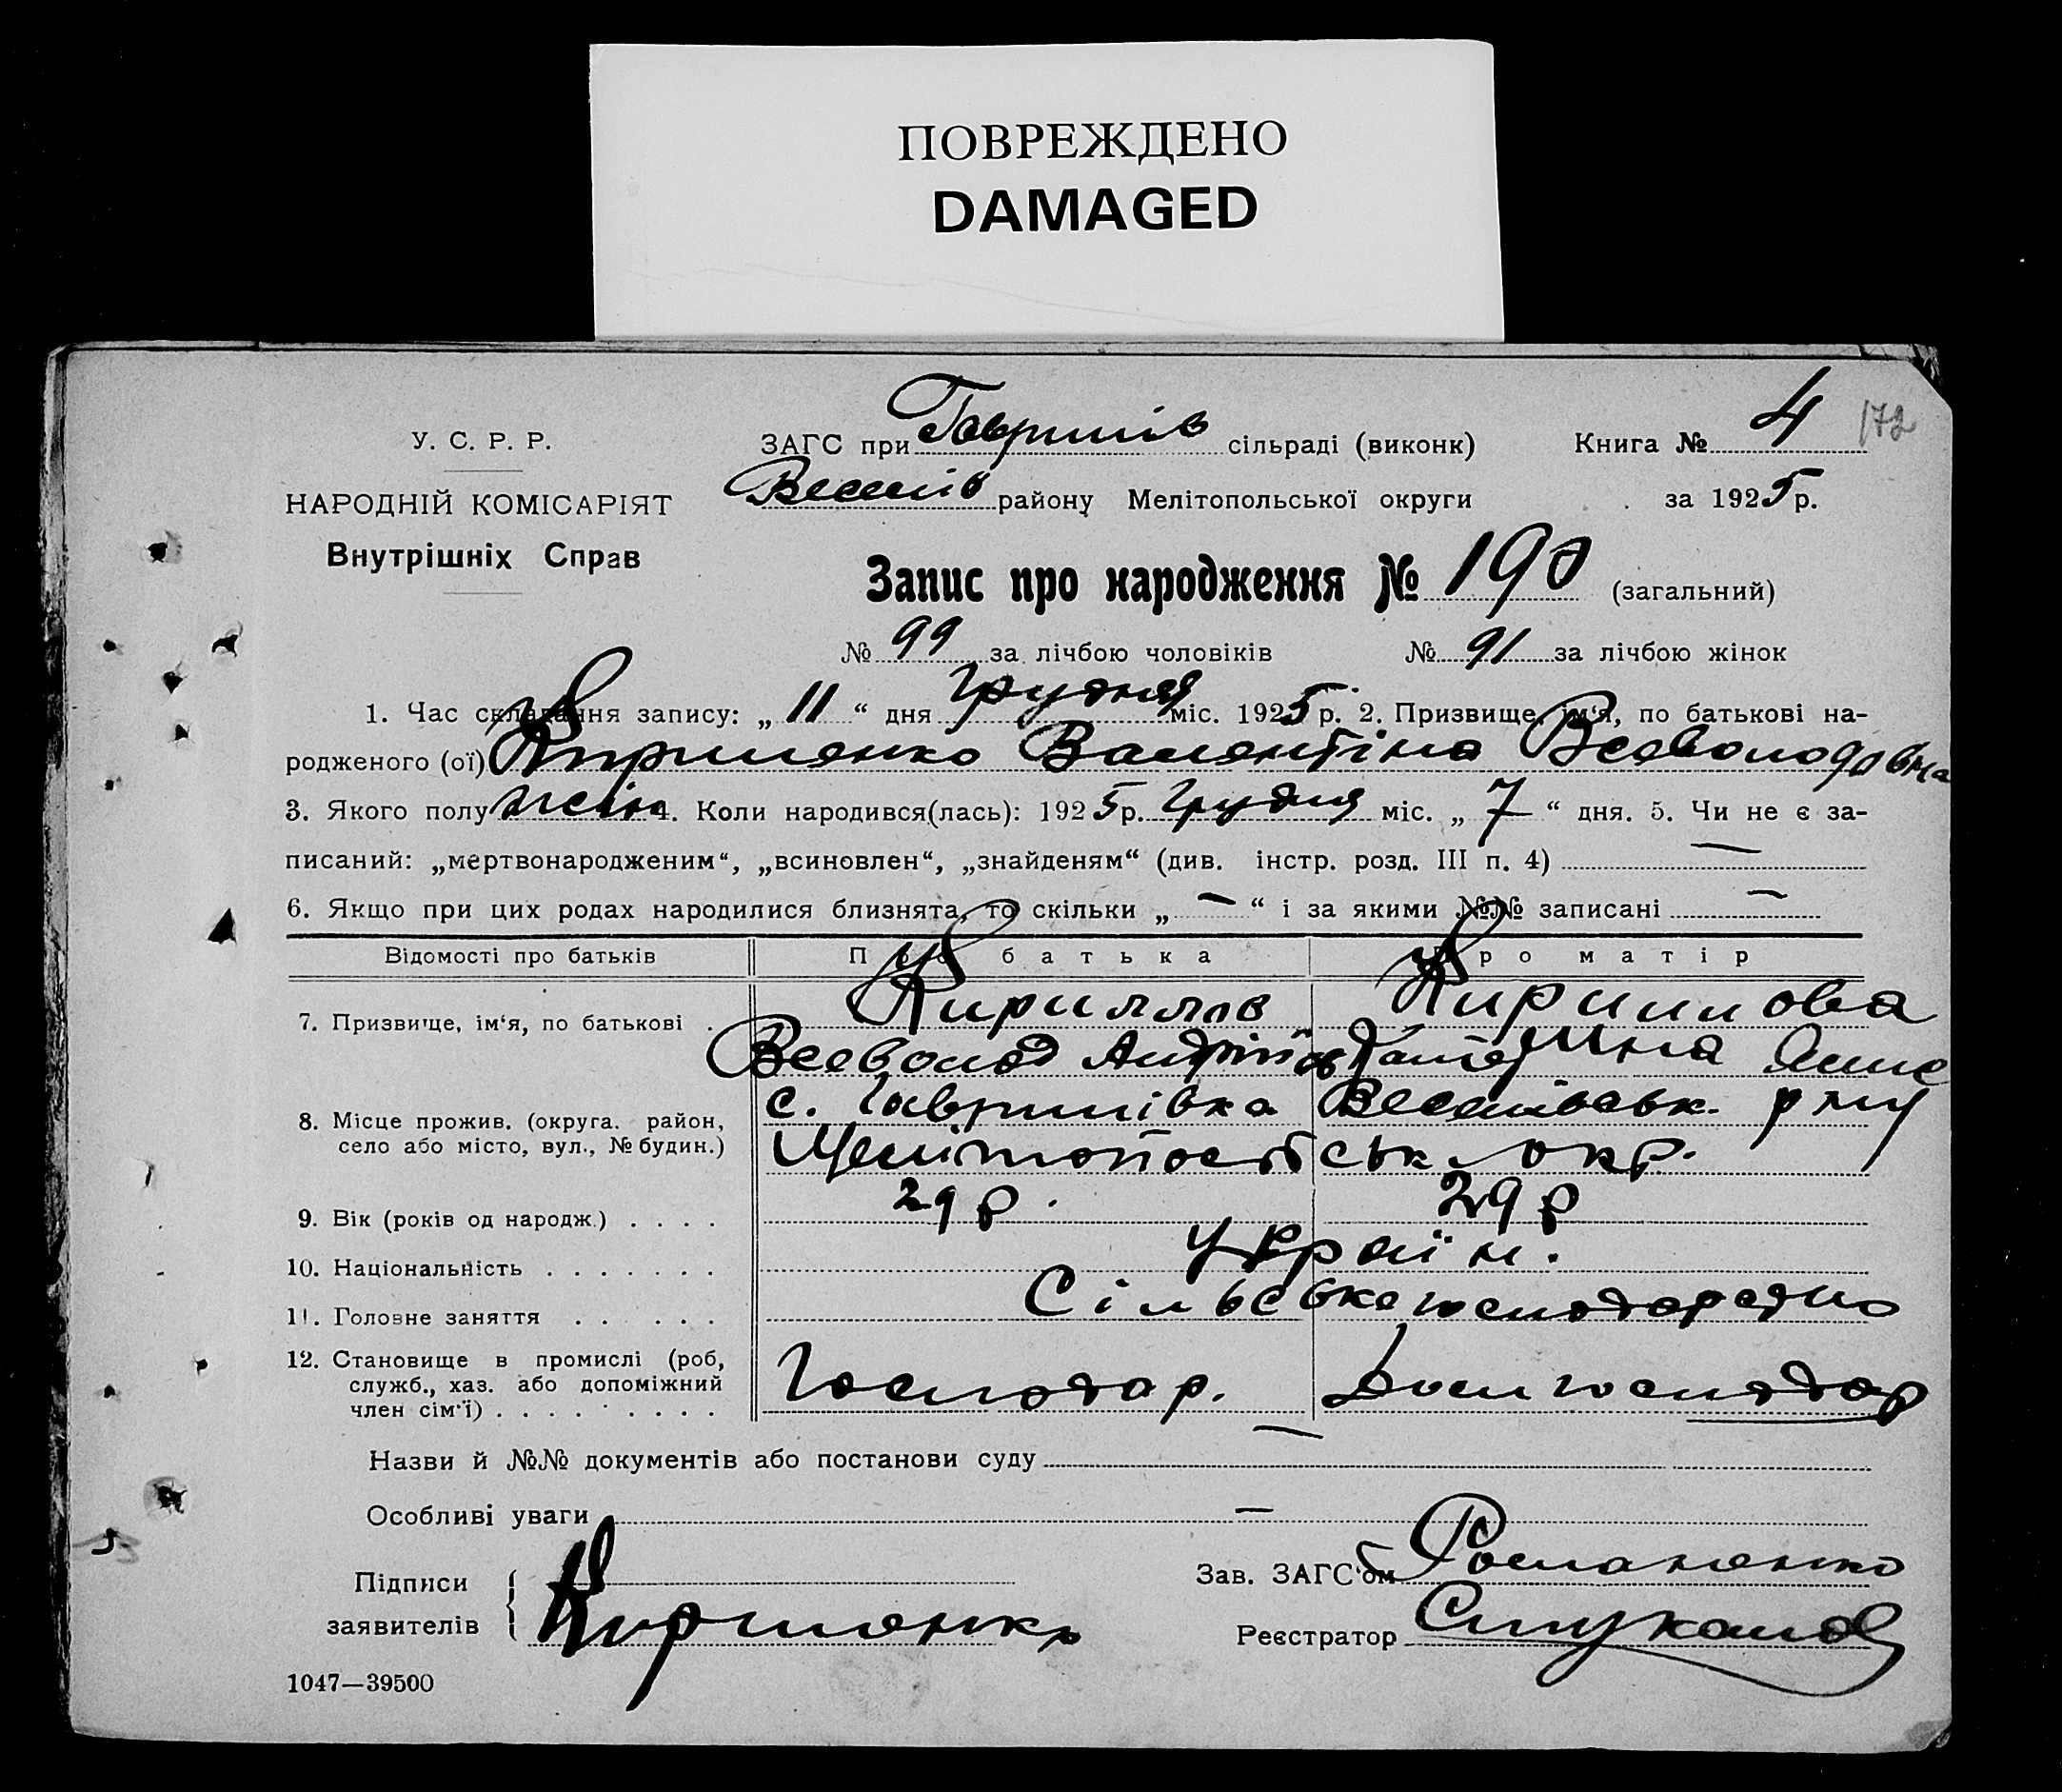 ПОВРЕЖДЕНО
DAMAGED
У. С. Р. Р.
НАРОДНІЙ КОМІСАРІЯТ
Внутрішніх Справ
ЗАГС при Гаврилів сільраді (виконк) Книга № 4 172
Веселів району Мелітопольської округи за 1925 р.
Запис про народження № 190 (загальний)
№ 99 за лічбою чоловіків № 91 за лічбою жінок
1. Час складання запису: „ 11 “ дня Грудня міс. 1925 р. 2. Призвище, ім‘я, по батькові на-
родженого (ої) Кириленко Валентіна Всеволодовна
3. Якого полу жін 4. Коли народився(лась): 1925 р. Грудня міс. „ 7 “ дня. 5. Чи не є за-
писаний: „мертвонародженим“, „всиновлен“, „знайденям“ (див. інстр. розд. III п. 4) —
6. Якщо при цих родах народилися близнята, то скільки „ — “ і за якими №№ записані —
Відомості про батьків Про батька Про матір
7. Призвище, ім‘я, по батькові . Кириллов Кирилова
Всеволод Андріїв Катерина
8. Місце прожив. (округа. район, с. Гаврилівка Веселівськ. р-ну
село або місто, вул., № будин.) Мелітопольськ. окр.
9. Вік (років од народж.) . . . . 29 р. 29 р
10. Національність . . . . . . . Україн.
11. Головне заняття . . . . . Сільське господарство
12. Становище в промислі (роб, Господар. Домгосподар
служб., хаз. або допоміжний
член сім‘ї) . . . . . . . . .
Назви й №№ документів або постанови суду —
Особливі уваги —
Підписи Зав. ЗАГС‘ом Романенко
заявителів Кириленко Реєстратор
1047—39500